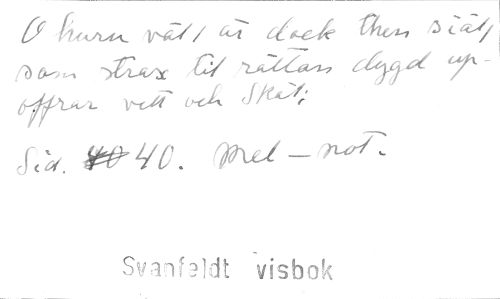 O huru väl, är dock then siäl,
som strax til rättan dygd up-
offrar vett och skäl;
Sid. 40. Mel-not.
Svanfeldt visbok